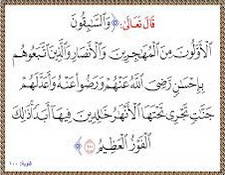 قَالَ تَعَالَىٰ: ﴿وَالسَّٰبِقُونَ
الْأَوَّلُونَ مِنَ الْمُهَٰجِرِينَ وَالْأَنصَارِ وَالَّذِينَ اتَّبَعُوهُم
بِإِحْسَٰنٍ رَّضِيَ اللَّهُ عَنْهُمْ وَرَضُوا عَنْهُ وَأَعَدَّ لَهُمْ
جَنَّٰتٍ تَجْرِي تَحْتَهَا الْأَنْهَٰرُ خَٰلِدِينَ فِيهَا أَبَدًا ذَٰلِكَ
الْفَوْزُ الْعَظِيمُ ١٠٠﴾
التوبة: ١٠٠